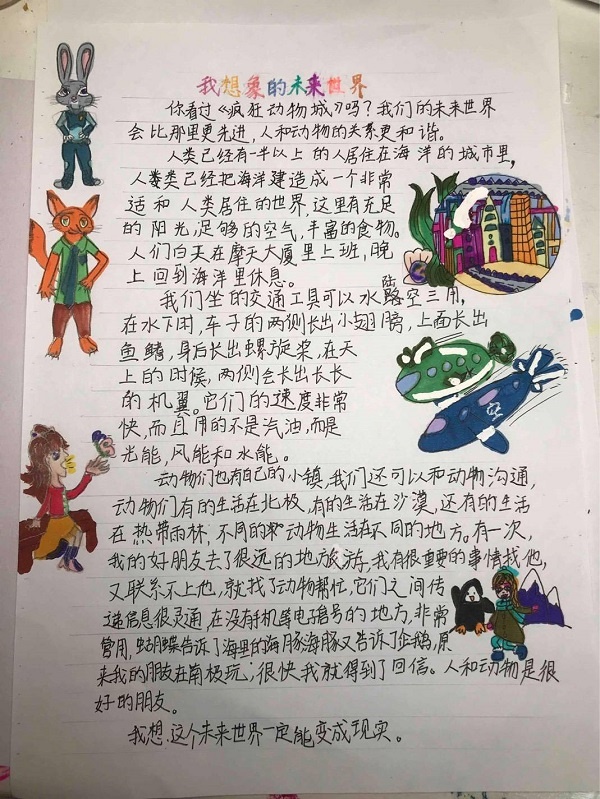 我想象的未来世界
你看过《疯狂动物城》吗？我们的未来世界
会比那里更先进，人和动物的关系更和谐。
人类已经有一半以上的人居住在海洋的城市里，
人类已经把海洋建造成一个非常
适和人类居住的世界，这里有充足
的阳光，足够的空气，丰富的食物。
人们白天在摩天大厦里上班，晚
上回到海洋里休息。
我们坐的交通工具可以水陆空三用，
在水下时，车子的两侧长出小翅膀，上面长出
鱼鳍，身后长出螺旋桨，在天
上的时候，两侧会长出长长
的机翼。它们的速度非常
快，而且用的不是汽油，而是
光能，风能和水能。
动物们也有自己的小镇，我们还可以和动物沟通，
动物们有的生活在北极，有的生活在沙漠，还有的生活
在热带雨林，不同的动物生活在不同的地方。有一次，
我的好朋友去了很远的地方旅游，我有很重要的事情找他，
又联系不上他，就找了动物帮忙，它们之间传
递信息很灵通，在没有手机等电话信号的地方，非常
管用，蝴蝶告诉了海里的海豚，海豚又告诉了企鹅，原
来我的朋友在南极玩，很快我就得到了回信。人和动物是很
好的朋友。
我想，这个未来世界一定能变成现实。